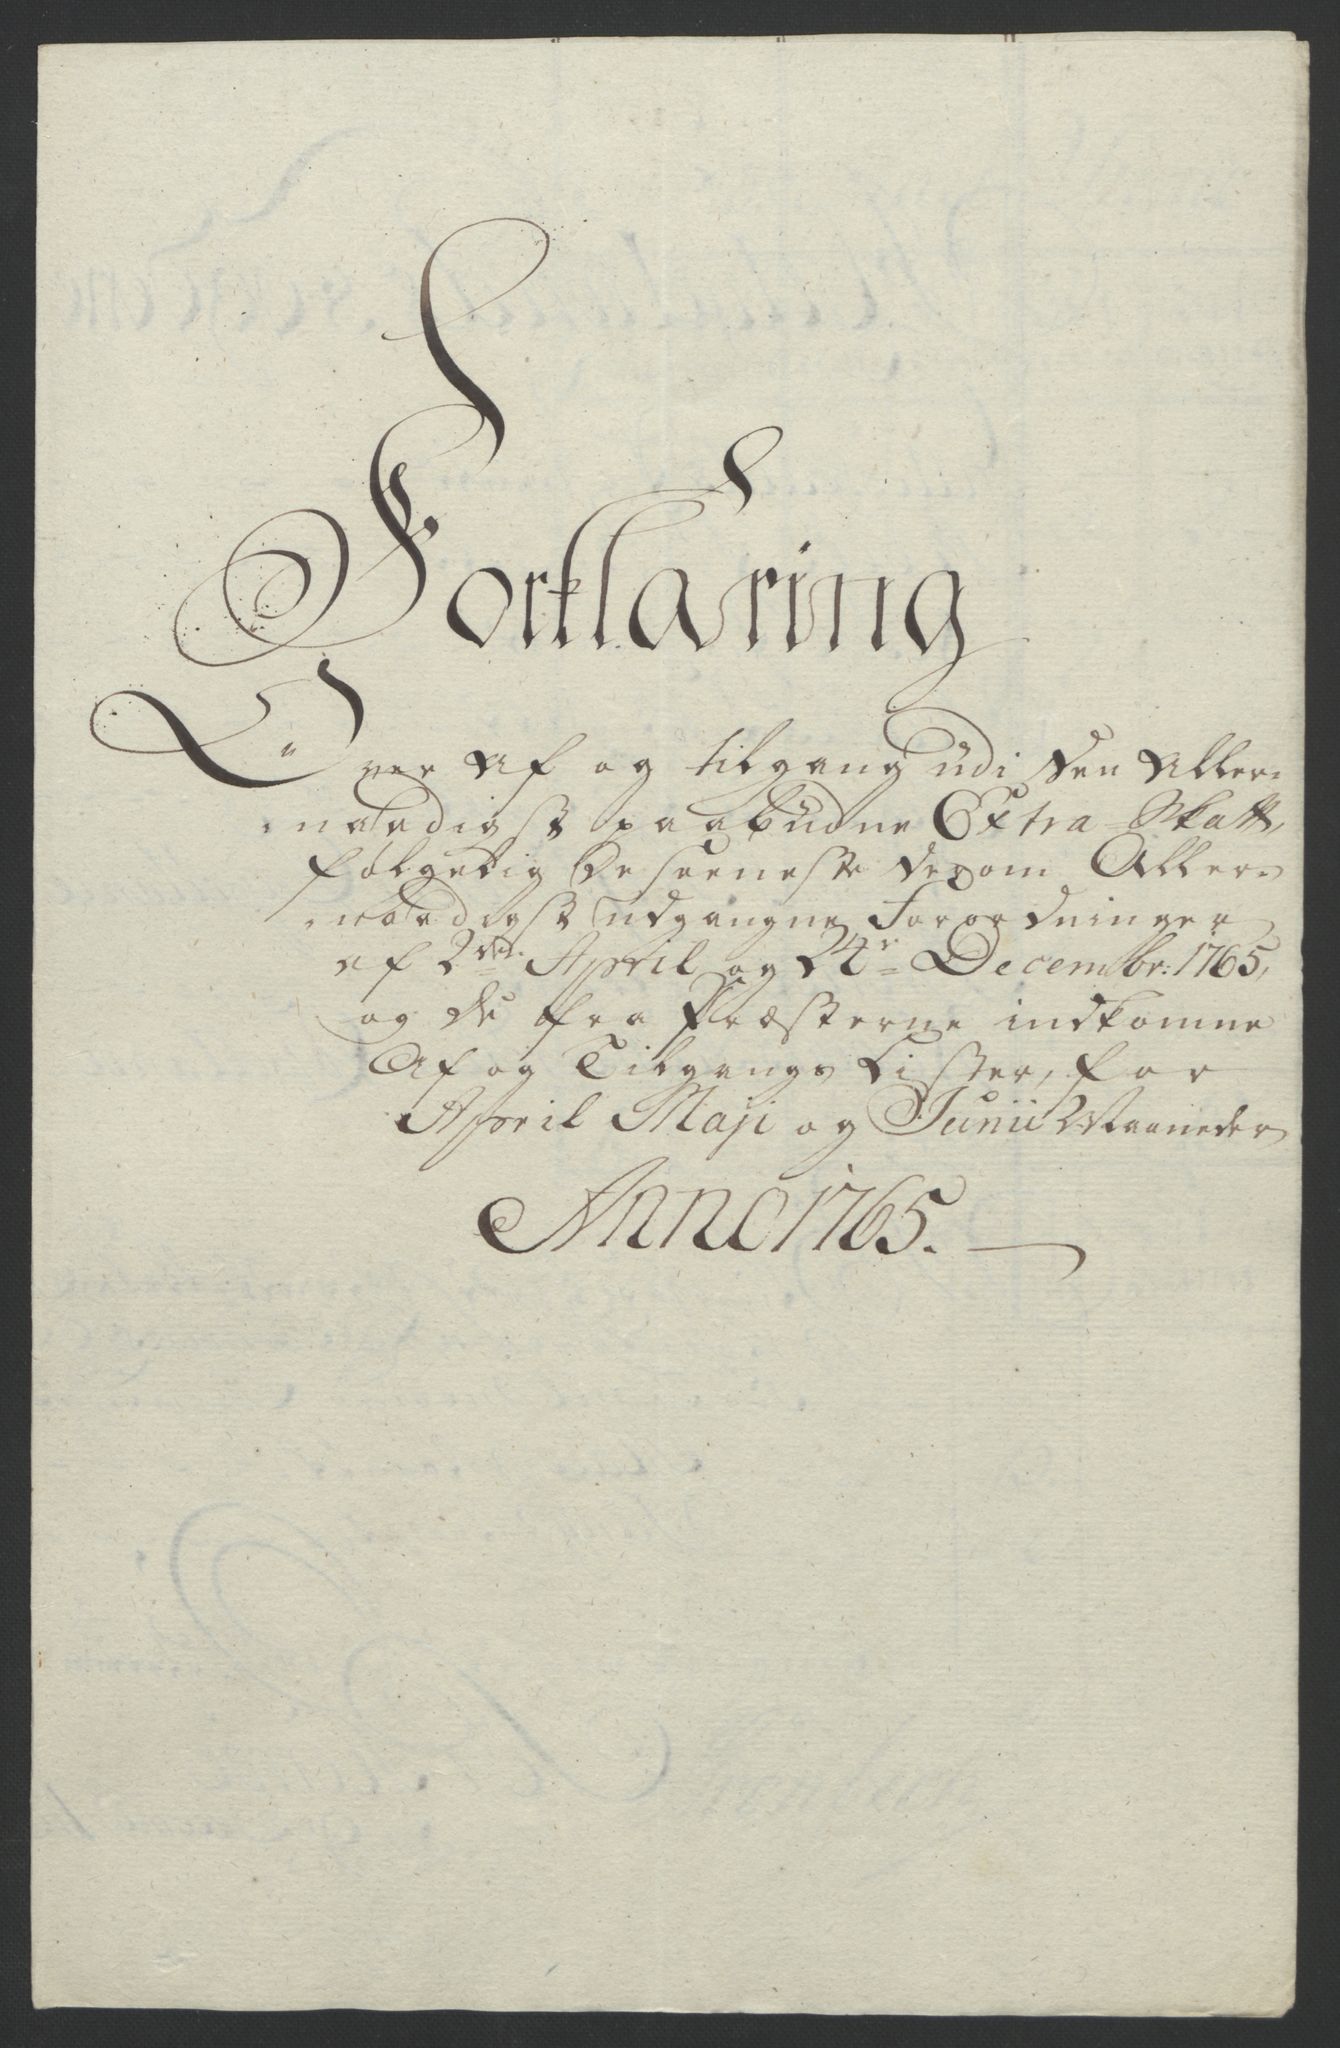 Forklaring
Over Af og tilgang udi den Aller-
naadigst paabudne Extra Skatt,
følgelig de seeneste derom Aller-
naadigst udgangne Forordninger
af 2den April og 24r Decembr: 1765,
og de fra Præsterne indkomne
Af og Tilgangs Lister, for
April Maji og Junii Maaneder
Anno 1765.